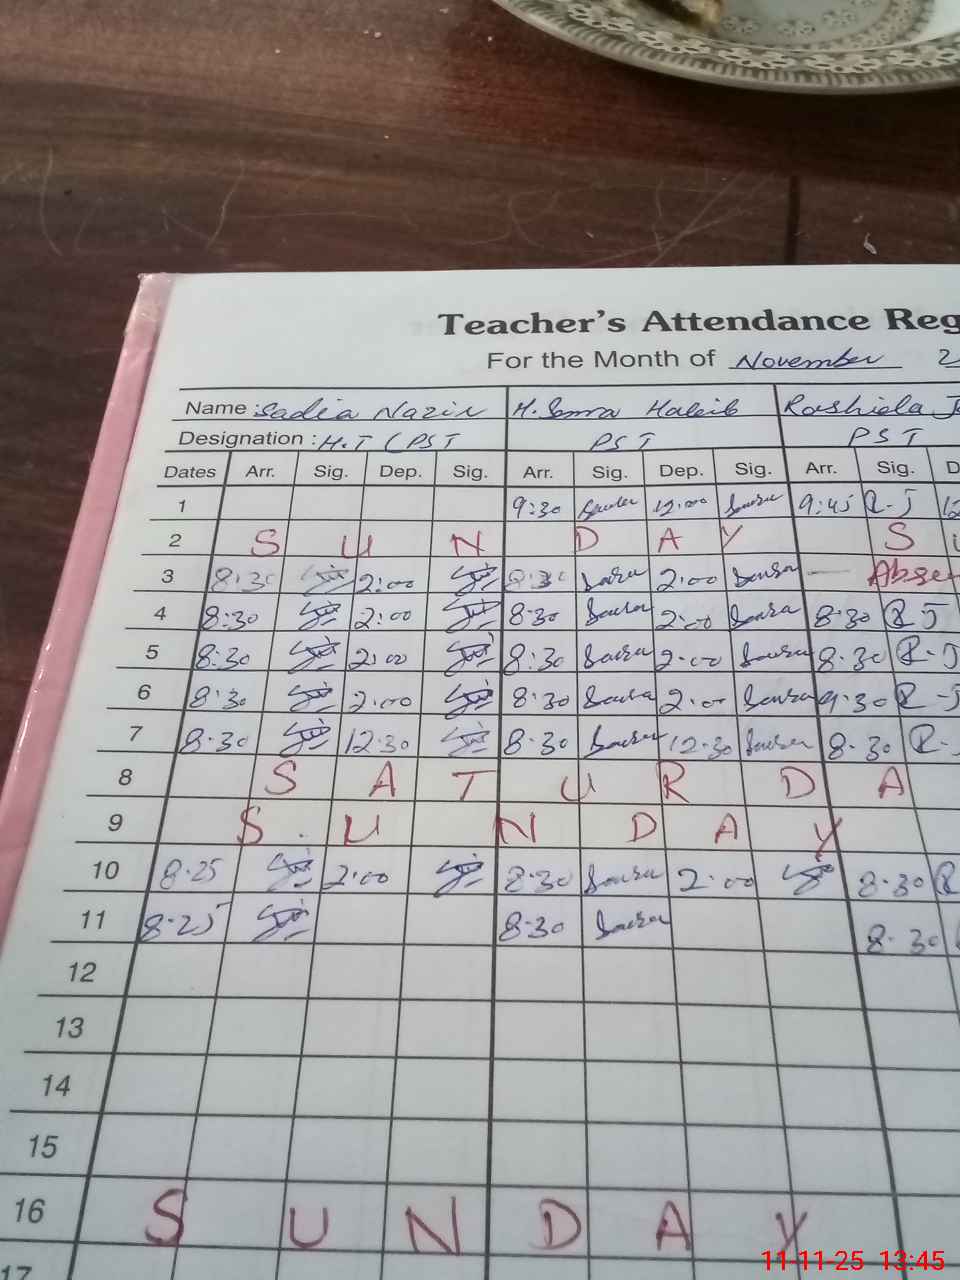 Teacher's Attendance Reg
For the Month of November 2
Name : Sadia Nazir H. Habib Rashida J
Designation : H.T (PST PST PST
Dates Arr. Sig. Dep. Sig. Arr. Sig. Dep. Sig. Arr. Sig. D
1 9:30 12:00 9:45 R-J 12
2 S U N D A Y S U
3 8:30 2:00 8:30 2:00 — Abse
4 8:30 2:00 8:30 2:00 8:30 R-J
5 8:30 2:00 8:30 2:00 8:30 R-J
6 8:30 2:00 8:30 2:00 9:30 R-J
7 8:30 12:30 8:30 12:30 8:30 R-
8 S A T U R D A
9 S U N D A Y
10 8:25 2:00 8:30 2:00 8:30 R
11 8:25 8:30 8:30
12
13
14
15
16 S U N D A Y
17
11-11-25 13:45